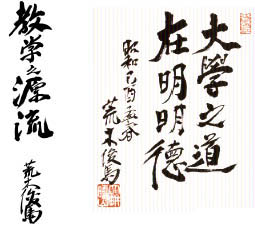 大學之道
在明明德
昭和己酉春
荒木俊馬
教学之源流
荒木俊馬